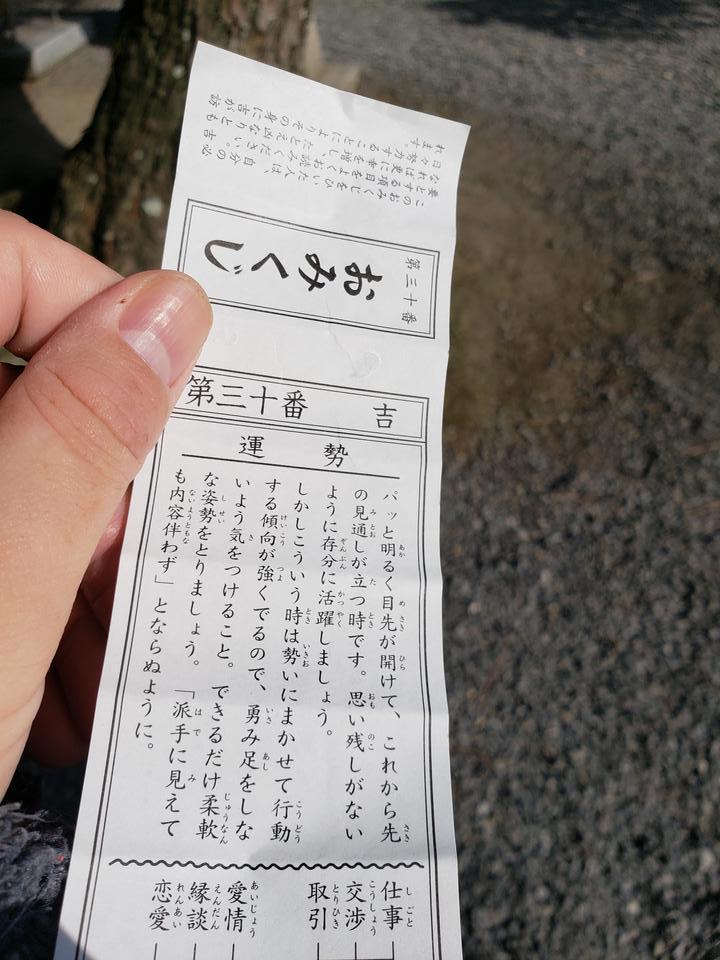 このおみくじをひいた人は、自分の必
要とする項目をよくお読みください。吉
なれば更に幸を増し、たとえ凶なりとも
日々努力することによりその身に吉が訪
れます
第三十番
おみくじ
第三十番 吉
運勢
パッと明るく目先が開けて、これから先
の見通しが立つ時です。思い残しがない
ように存分に活躍しましょう。
しかしこういう時は勢いにまかせて行動
する傾向が強くでるので、勇み足をしな
いよう気をつけること。できるだけ柔軟
な姿勢をとりましょう。「派手に見えて
も内容伴わず」とならぬように。
仕事
交渉
取引
愛情
縁談
恋愛